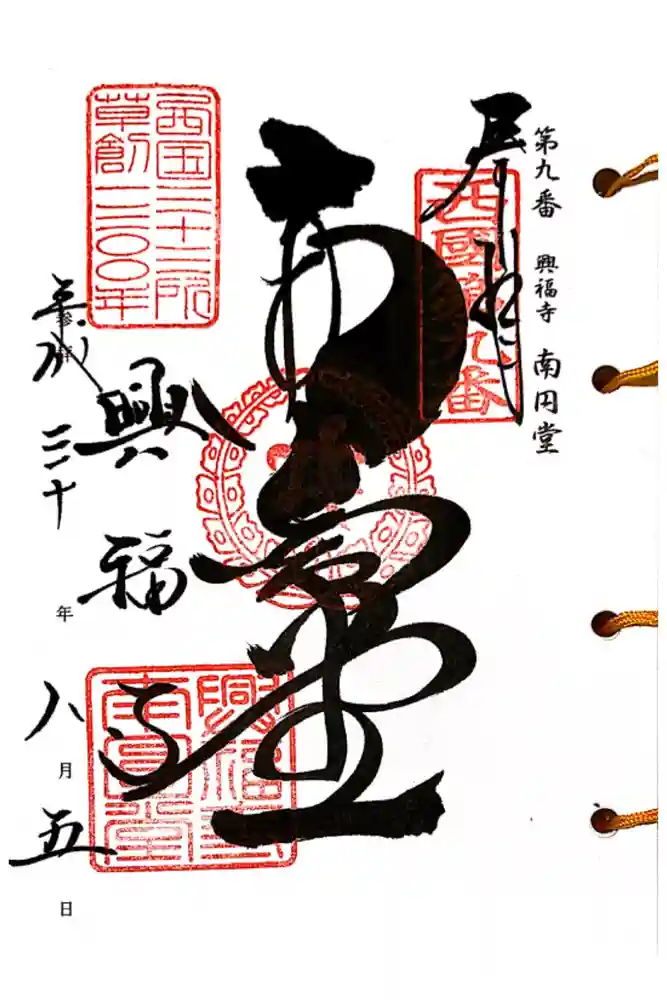 第九番 興福寺 南円堂
奉拝
西國第九番
西国三十三所
草創一三〇〇年
興福寺
平成三十年八月五日